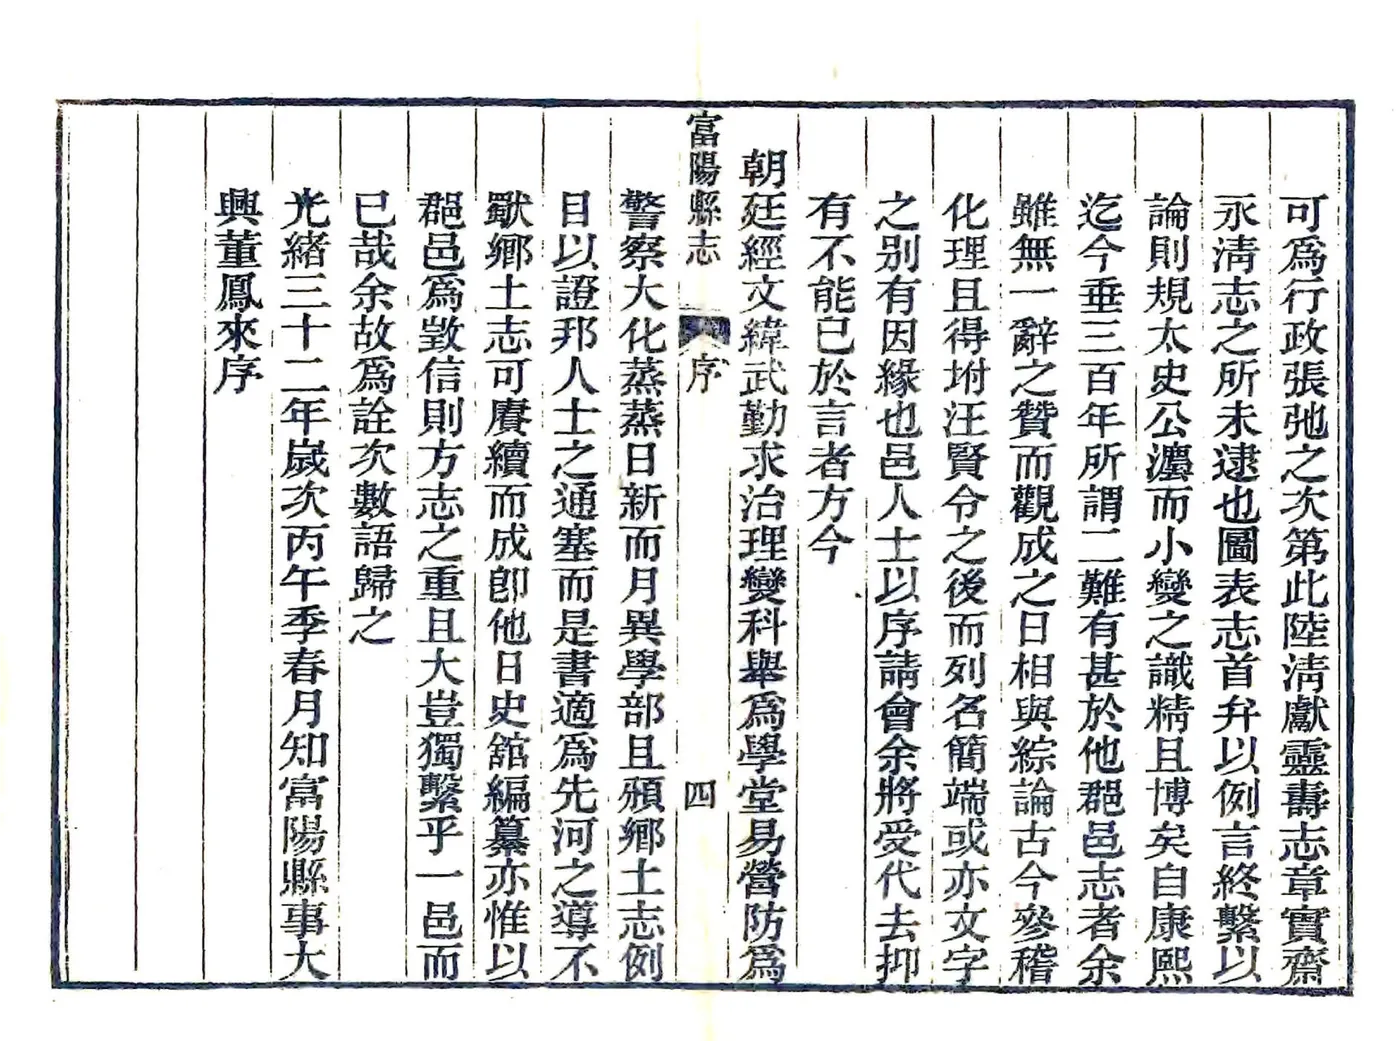 可爲行政張弛之次第此陸淸獻靈壽志章實齋
永淸志之所未逮也圖表志首弁以例言終繫以
論則規太史公灋而小變之識精且博矣自康熙
迄今垂三百年所謂二難有甚於他郡邑志者余
雖無一辭之贊而觀成之日相與綜論古今參稽
化理且得坿汪賢令之後而列名簡端或亦文字
之别有因緣也邑人士以序請會余將受代去抑
有不能已於言者方今
朝廷經文緯武勤求治理變科舉爲學堂易營防爲
富陽縣志 序 四
警察大化蒸蒸日新而月異學部且頒鄉土志例
目以證邦人士之通塞而是書適爲先河之導不
獸鄉土志可賡續而成卽他日史舘編纂亦惟以
郡邑爲敳信則方志之重且大豈獨繫乎一邑而
已哉余故爲詮次數語歸之
光緒三十二年歲次丙午季春月知富陽縣事大
興董鳳來序